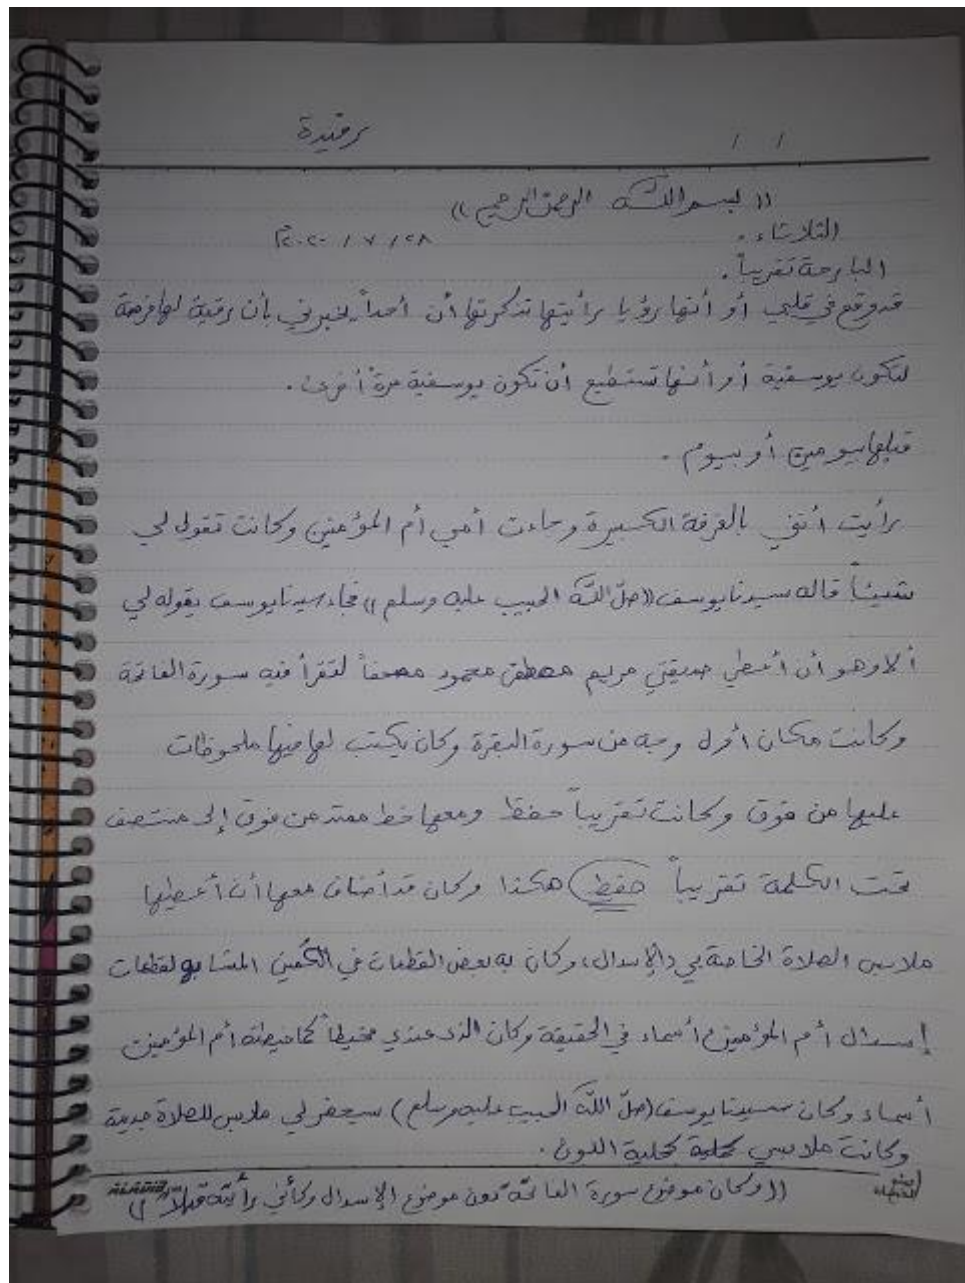 / /
(( بسم الله الرحمن الرحيم ))
الثلاثاء . ٢٠٢٠ / ٧ / ٢٨م
البارحة تقريباً .
قد وقع في قلبي أو أنها رؤيا رأيتها تذكرتها أن أحداً يخبرني بأن رقية لها فرصة
لتكون يوسفية أو أنها تستطيع أن تكون يوسفية مرةً أخرى .
قبلها بيومين أو بيوم .
رأيت أنني بالغرفة الكبيرة وجاءت أمي أم المؤمنين وكانت تقول لي
شيئاً قاله سيدنا يوسف ((صلّ اللّه الحبيب عليه وسلم )) فجاء سيدنا يوسف يقوله لي
ألا وهو أن أعطي صديقتي مريم مصطفى محمود مصحفاً لتقرأ فيه سورة الفاتحة
وكانت مكان أول وجه من سورة البقرة وكان يكتب لها فيها ملحوظات
عليها من فوق وكانت تقريباً حفظ ومعها خط ممتد من فوق إلى منتصف
تحت الكلمة تقريباً حفظ هكذا وكان قد أضاف معها أن أعطيها
ملابس الصلاة الخاصة بي (الإسدال) وكان به بعض القطعات في الكمين المشابه لقطعات
إسدال أم المؤمنين أسماء في الحقيقة وكان الذي عندي مخيطاً كما خيطته أم المؤمنين
أسماء وكان سيدنا يوسف (صلّ اللّه الحبيب عليه وسلم) سيحضر لي ملابس للصلاة جديدة
وكانت ملابسي كحلية كحلية اللون .
((وكان موضوع سورة الفاتحة دون موضوع الإسدال وكأني رأيته قبلاً ))